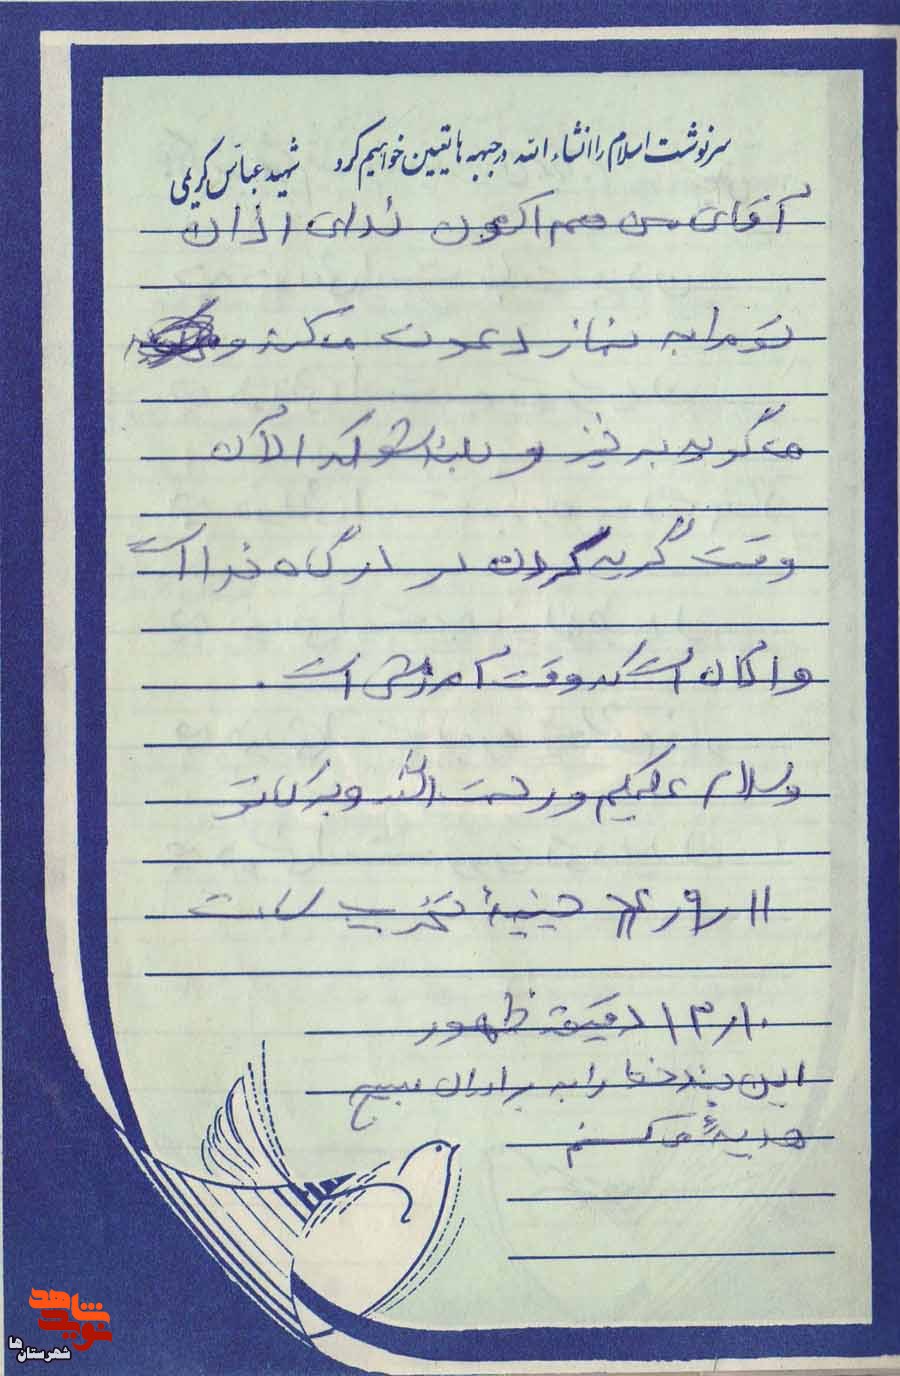 سرنوشت اسلام را انشاء الله در جبهه ها تعیین خواهیم کرد شهید عباس کریمی
آقای من هم اکنون ندای اذان
تو مرا به نماز دعوت می کند و
می گوید برخیز و بلند شو که الآن
وقت گریه کردن در درگاه خدا است
و اکان است که وقت آمرزش است.
وسلام علیکم و رحمت الله و برکاتو
۱۱ / ۹ / ۶۴ حسینیهٔ تخریب ساعت
۱۰ / ۱۳ دقیقه ظهور
این چند خط را به برادران بسیج
هدیه می کنم
نوید شاهد
شهرستان ها